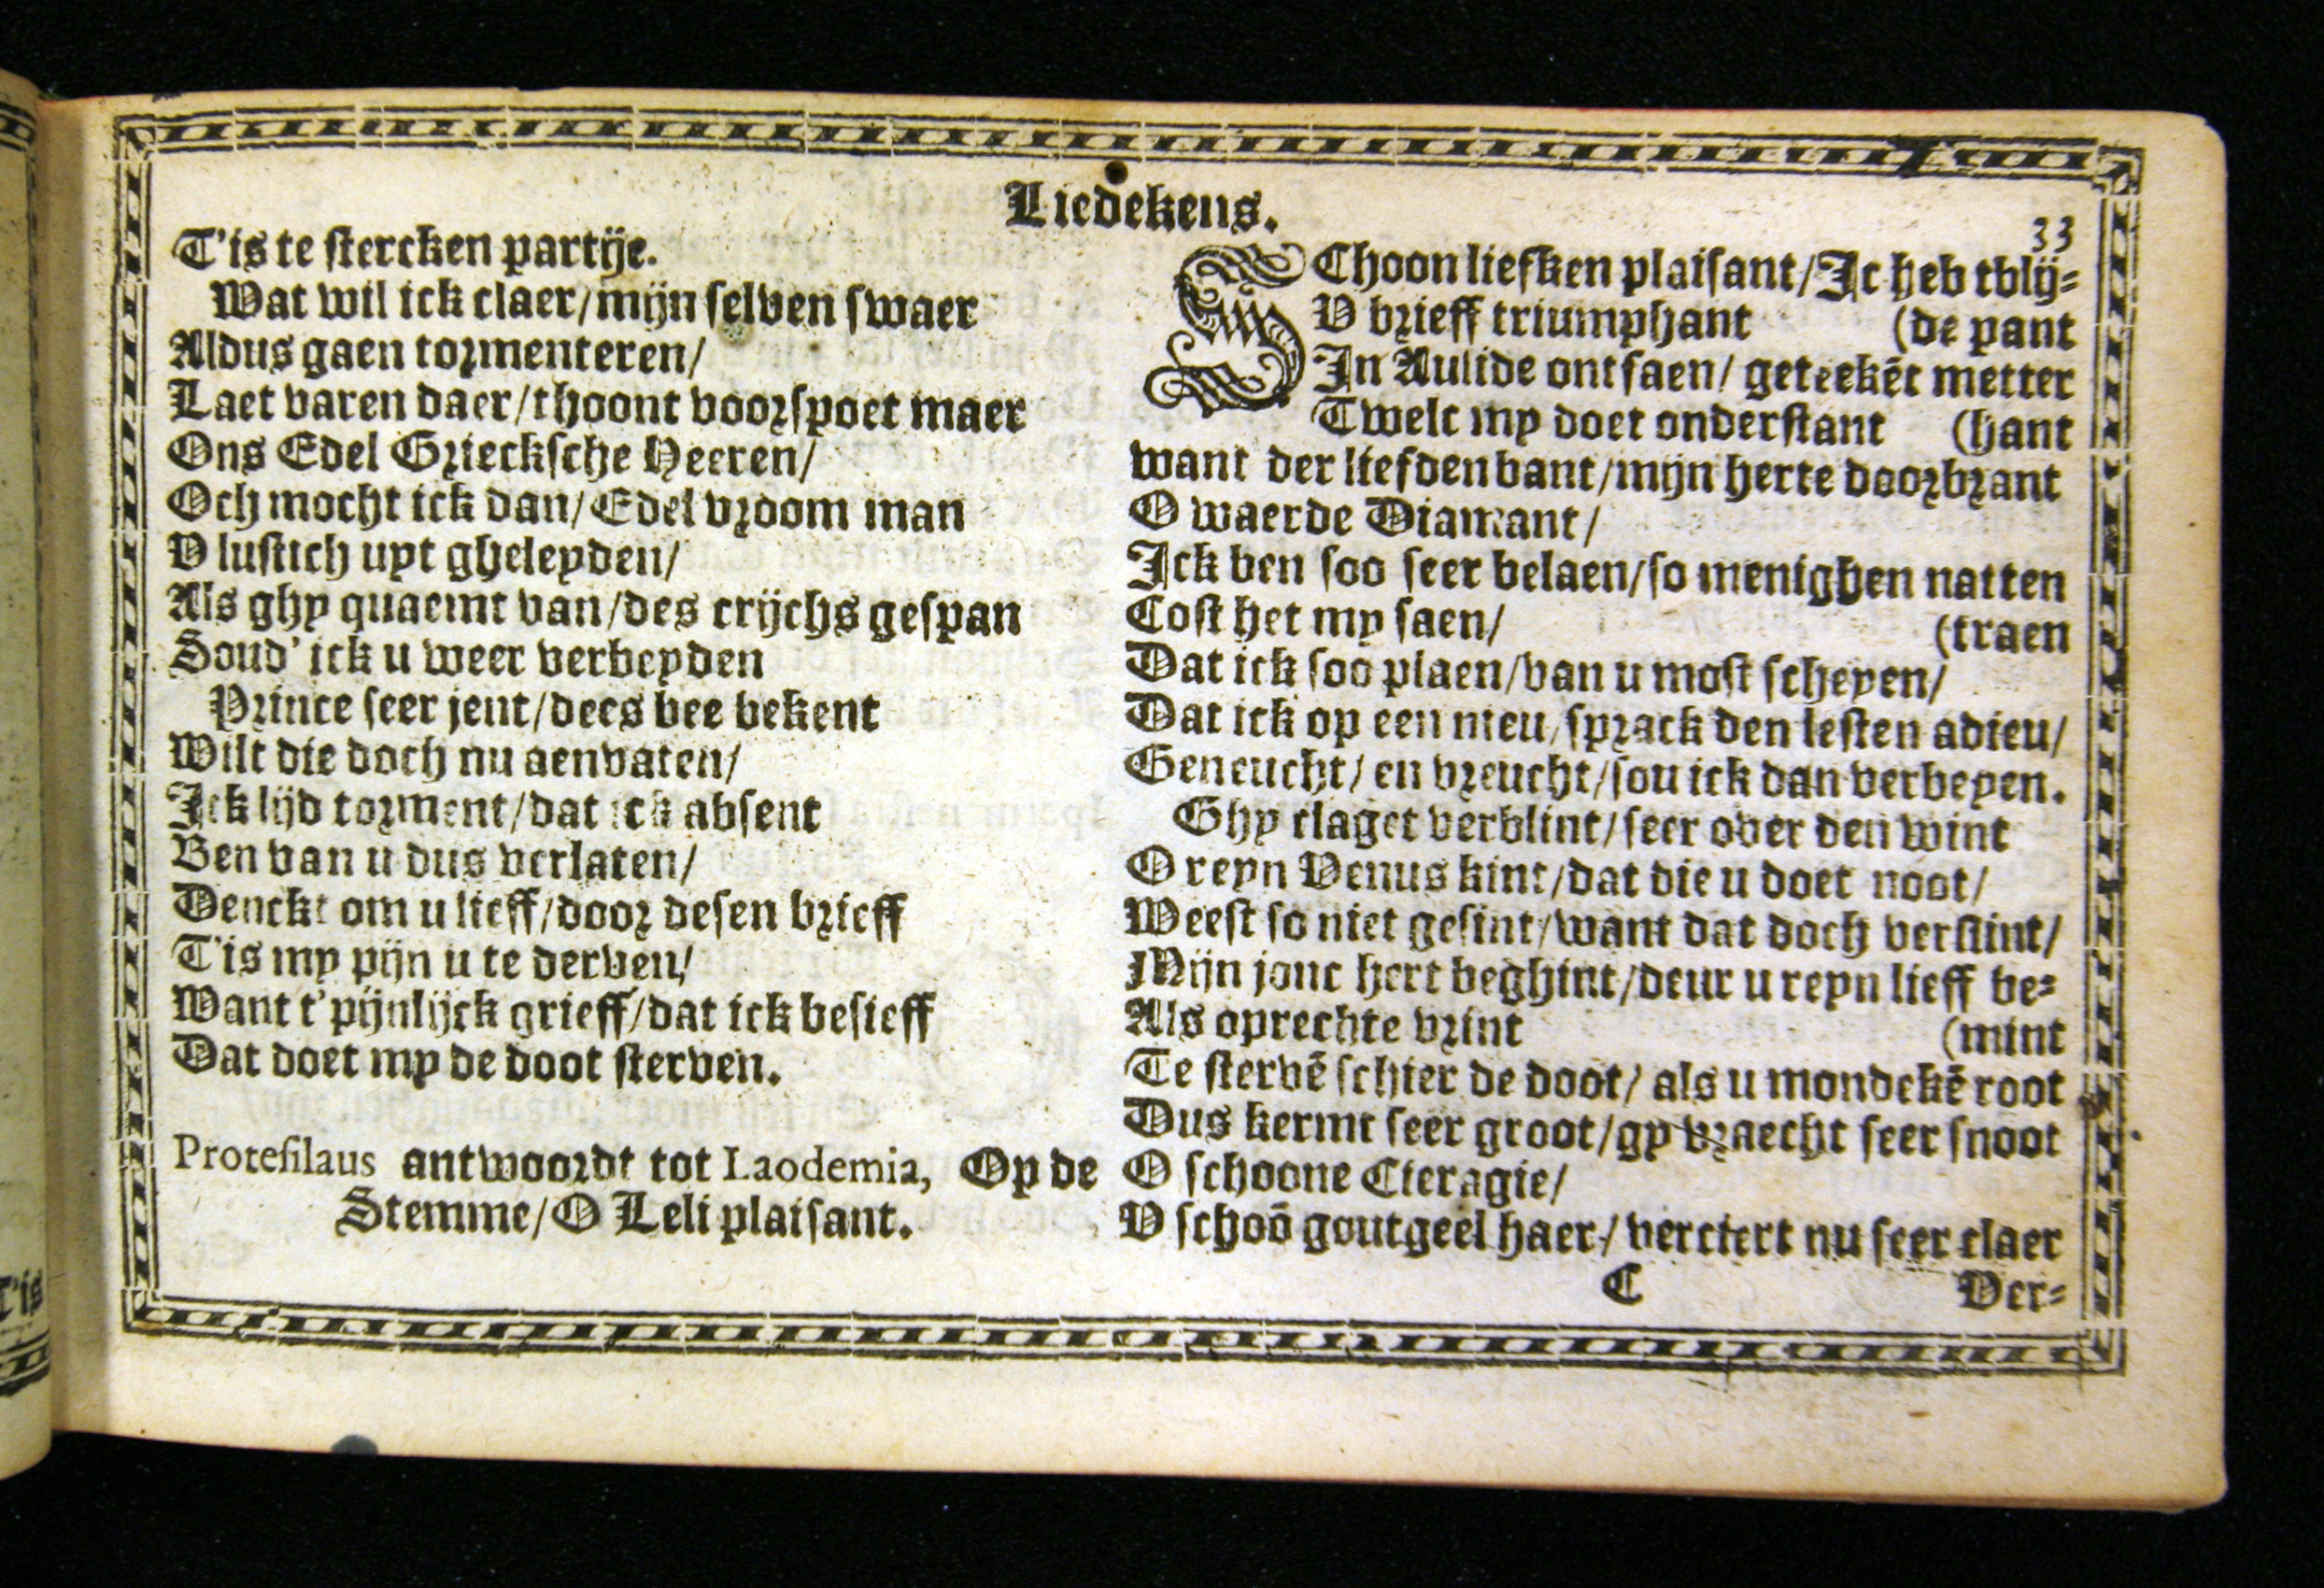 Liedekens.
33
T'is te stercken partije.
Wat wil ick claer/mijn selven swaer
Aldus gaen tormenteren/
Laet varen daer/thoont voorspoet maer
Ons Edel Griecksche Heeren/
Och mocht ick dan/Edel vroom man
V lustich uyt gheleyden/
Als ghy quaemt van/des crijchs gespan
Soud' ick u weer verbeyden
Prince seer jent/dees bee bekent
Wilt die doch nu aenvaten/
Ick lijd torment/dat ick absent
Ben van u dus verlaten/
Denckt om u lieff/door desen brieff
T'is my pijn u te derven/
Want t'pijnlijck grieff/dat ick besieff
Dat doet my de doot sterven.
Protesilaus antwoordt tot Laodemia, Op de
Stemme/O Leli plaisant.
SChoon liefken plaisant/Ic heb tblij-
V brieff triumphant (de pant
In Aulide ontfaen/ geteekēt metter
Twelc my doet onderstant (hant
want der liefden bant/mijn herte doorbrant
O waerde Diamant/
Ick ben soo seer belaen/so menighen natten
Cost het my saen/ (traen
Dat ick soo plaen/van u most scheyen/
Dat ick op een nieu/sprack den lesten adieu/
Geneucht/en vreucht/sou ick dan verbeyen.
Ghy claget verblint/seer over den wint
O reyn Venus kint/dat die u doet noot/
Weest so niet gesint/want dat doch verslint/
Mijn jonc hert beghint/deur u reyn lieff be-
Als oprechte vrint (mint
Te stervē schier de doot/ als u mondekē root
Dus kermt seer groot/gy vraecht seer snoot
O schoone Cieragie/
V schoō goutgeel haer/ verciert nu seer claer
C Ver-
T'is